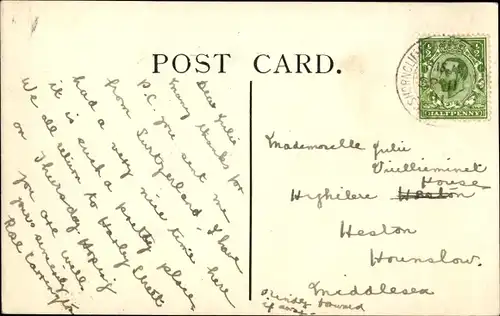 POST CARD.
Dear Julie
Many thanks for
P.C. you sent me
from Switzerland. I have
had a very nice time here
it is such a pretty place.
We all return to Harley Street
on Thursday. Hoping
you are well
yours sincerely
Rae Carrington
SHORNCLIFFE
1/2 1/2
HALFPENNY
Mademoiselle Julie
Vuillieminek
House
Highclere Heston
Heston
Hounslow.
Middlesex
Kindly forward
if away.